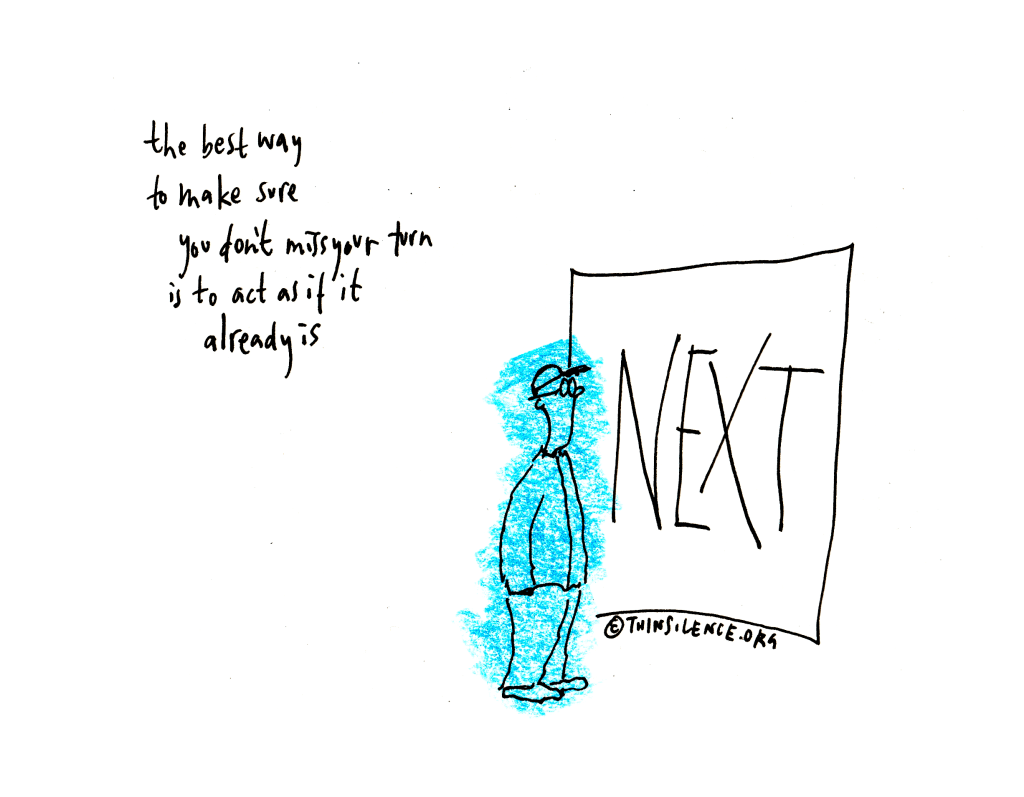 the best way
to make sure
you don't miss your turn
is to act as if it
already is
NEXT
©THINSILENCE.ORG